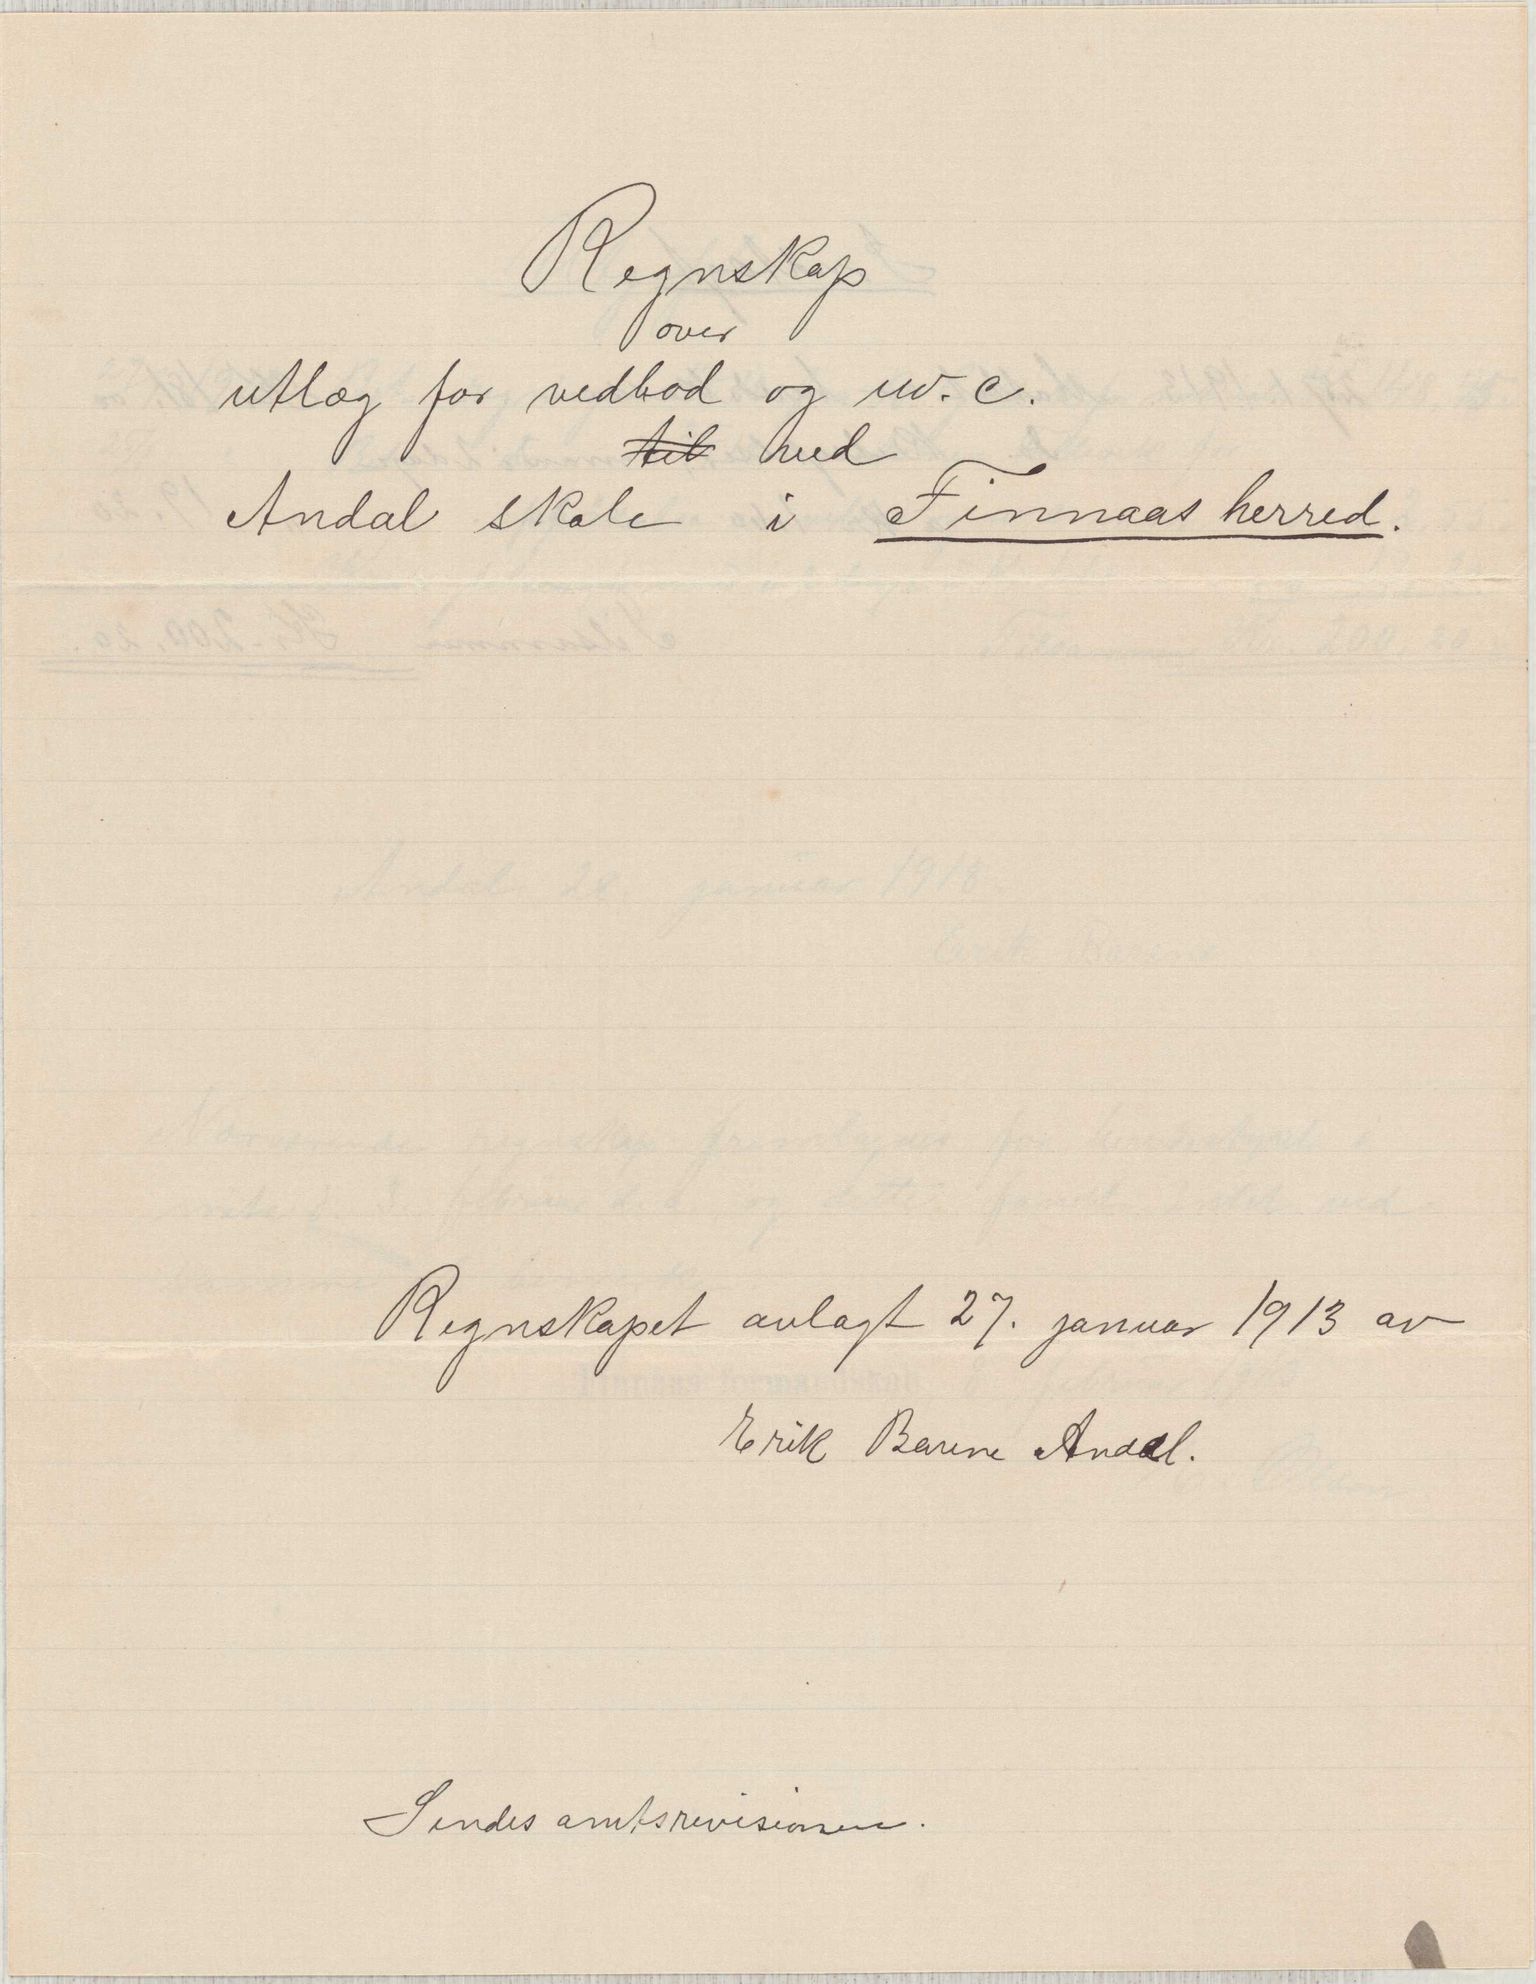 Regnskap
over
utlæg for vedbod og w. c.
~~til~~ ved
Andal skole i Finnaas herred.
Regnskapet avlagt 27. januar 1913 av
Erik Barene Andal.
Sendes amtsrevisionen.